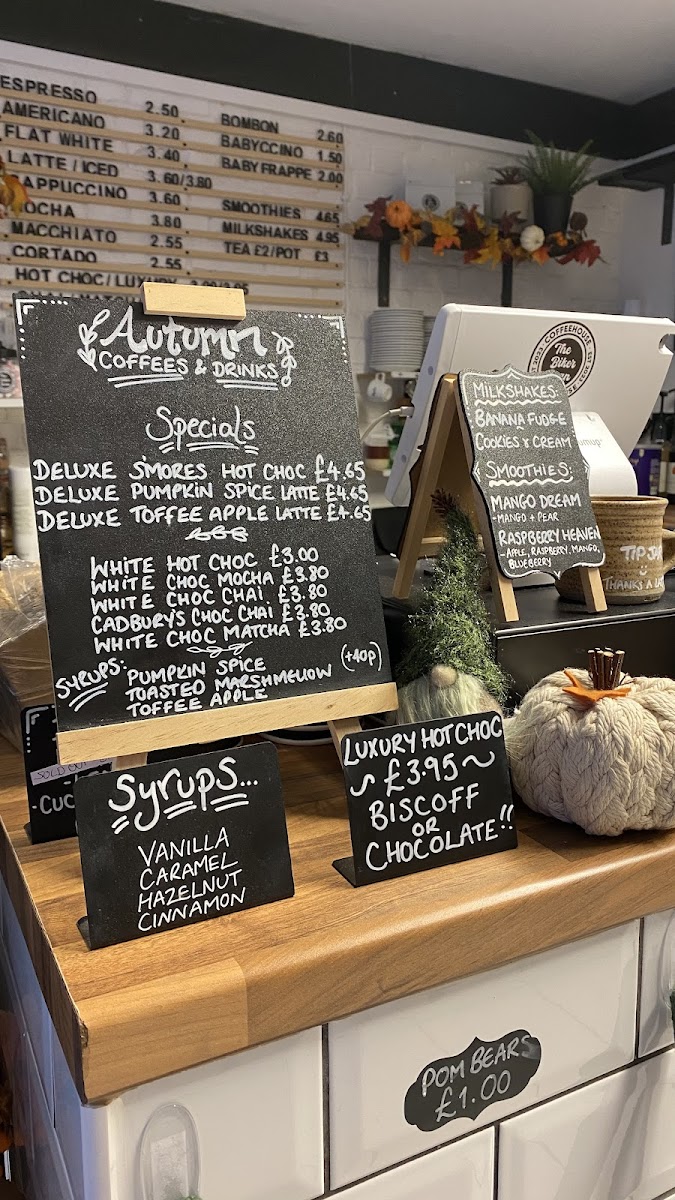 ESPRESSO 2.50
AMERICANO 3.20
FLAT WHITE 3.40
LATTE / ICED 3.60/3.80
CAPPUCCINO 3.60
MOCHA 3.80
MACCHIATO 2.55
CORTADO 2.55
HOT CHOC / LUXURY
BONBON 2.60
BABYCCINO 1.50
BABY FRAPPE 2.00
SMOOTHIES 4.65
MILKSHAKES 4.95
TEA £2/POT £3
Autumn
COFFEES & DRINKS
Specials
DELUXE S'MORES HOT CHOC £4.65
DELUXE PUMPKIN SPICE LATTE £4.65
DELUXE TOFFEE APPLE LATTE £4.65
WHITE HOT CHOC £3.00
WHITE CHOC MOCHA £3.80
WHITE CHOC CHAI £3.80
CADBURY'S CHOC CHAI £3.80
WHITE CHOC MATCHA £3.80
SYRUPS: PUMPKIN SPICE (+40p)
TOASTED MARSHMELLOW
TOFFEE APPLE
COFFEEHOUSE
The Biker
MILKSHAKES:
BANANA FUDGE
COOKIES & CREAM
SMOOTHIES:
MANGO DREAM
- MANGO + PEAR
RASPBERRY HEAVEN
- APPLE, RASPBERRY, MANGO,
BLUEBERRY
TIP JAR
THANKS A
SOLD OUT
Syrups...
VANILLA
CARAMEL
HAZELNUT
CINNAMON
LUXURY HOT CHOC
~ £3.95 ~
BISCOFF
OR
CHOCOLATE!!
POM BEARS
£1.00